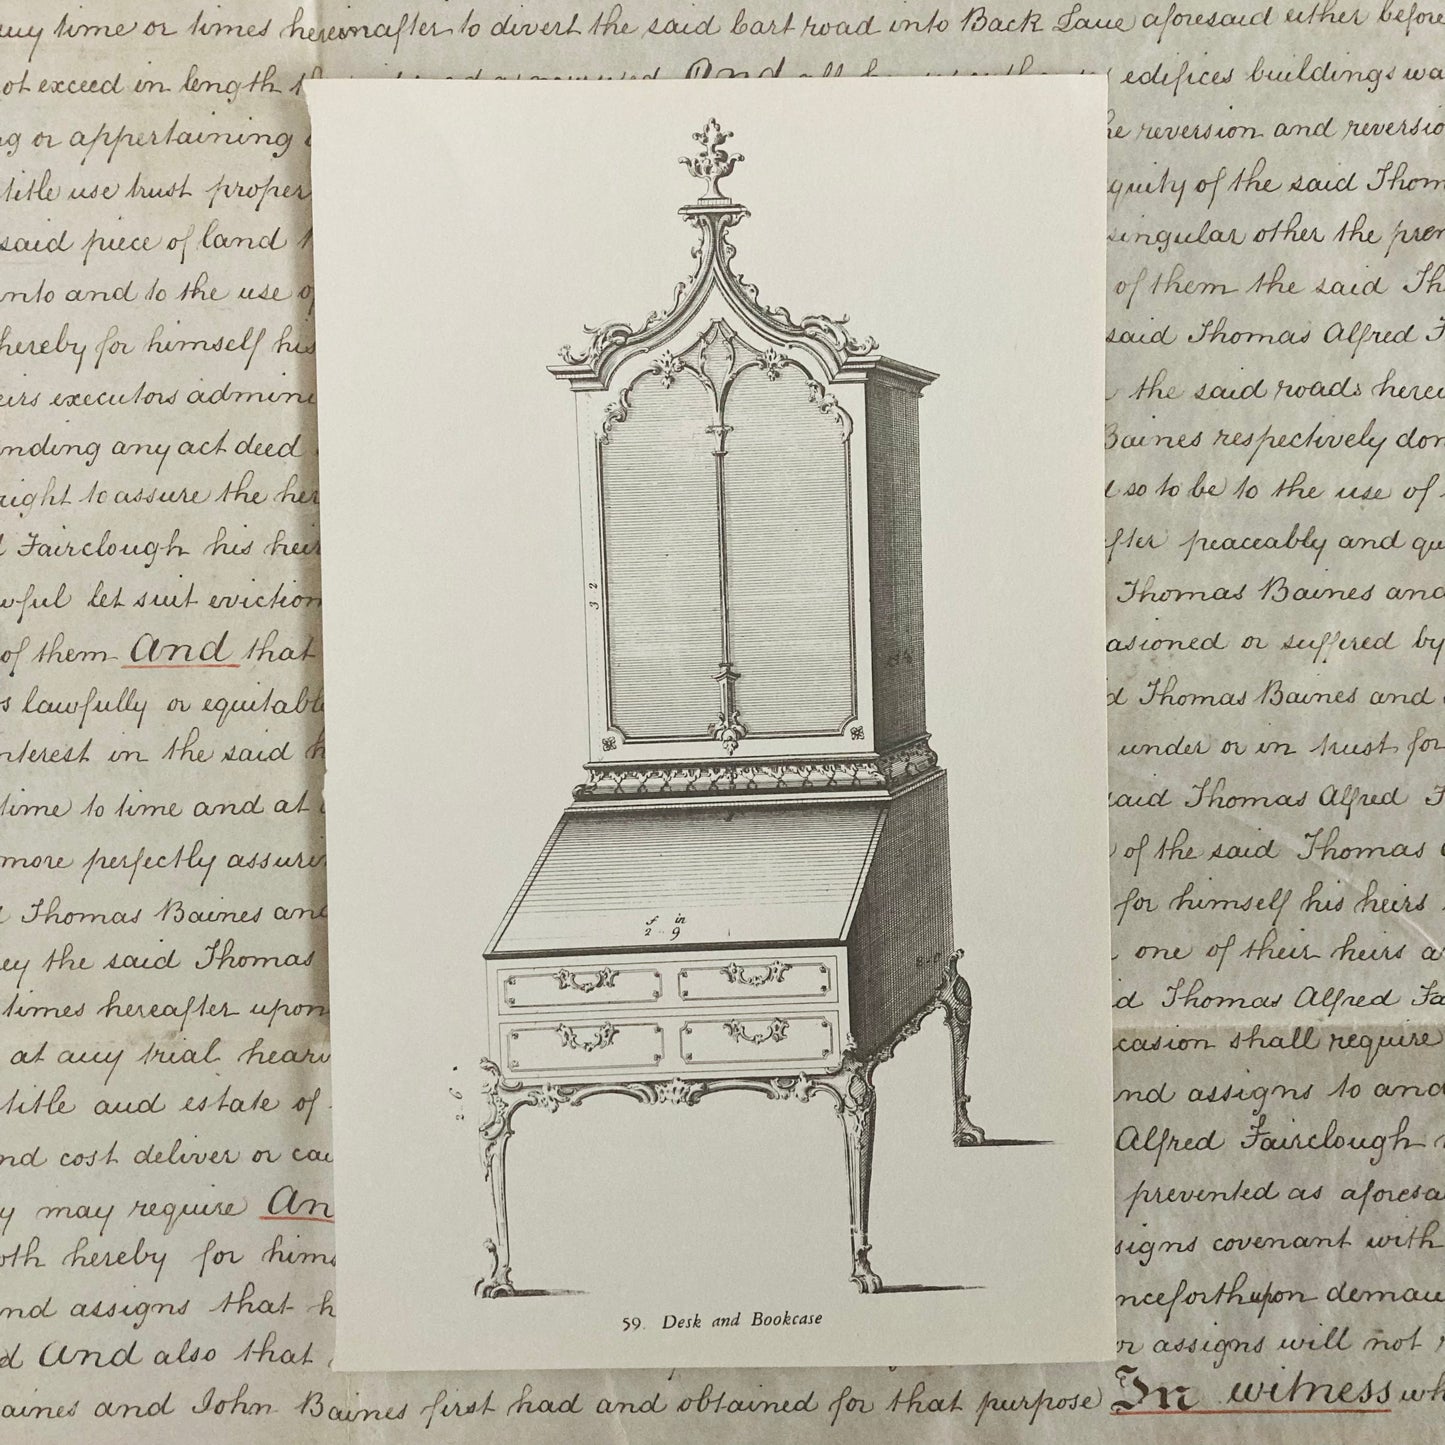 any time or times hereinafter to divert the said Cart road into Back Lane aforesaid either before
not exceed in length
And
edifices buildings
or appertaining
the reversion and
title use trust
of the said
said piece of land
singular other the
into and to the use of
of them the said
hereby for himself his
said Thomas Alfred
heirs executors
the said roads
any act deed
Baines respectively
right to assure the
so to be to the use of
Fairclough his
peaceably and
let suit eviction
Thomas Baines and
of them And that
occasioned or suffered by
lawfully or
Thomas Baines and
interest in the said
under or in trust for
time to time and at
said Thomas Alfred
more perfectly
of the said Thomas
Thomas Baines and
for himself his heirs
they the said Thomas
one of their heirs
times hereafter upon
Thomas Alfred
at any trial
shall require
title and estate of
and assigns to and
and cost deliver or
Alfred Fairclough
may require
prevented as
hereby for
covenant with
and assigns that
upon
And also that
or assigns will not
Baines and John Baines first had and obtained for that purpose In witness
32
f in
2 9
2 6
59. Desk and Bookcase